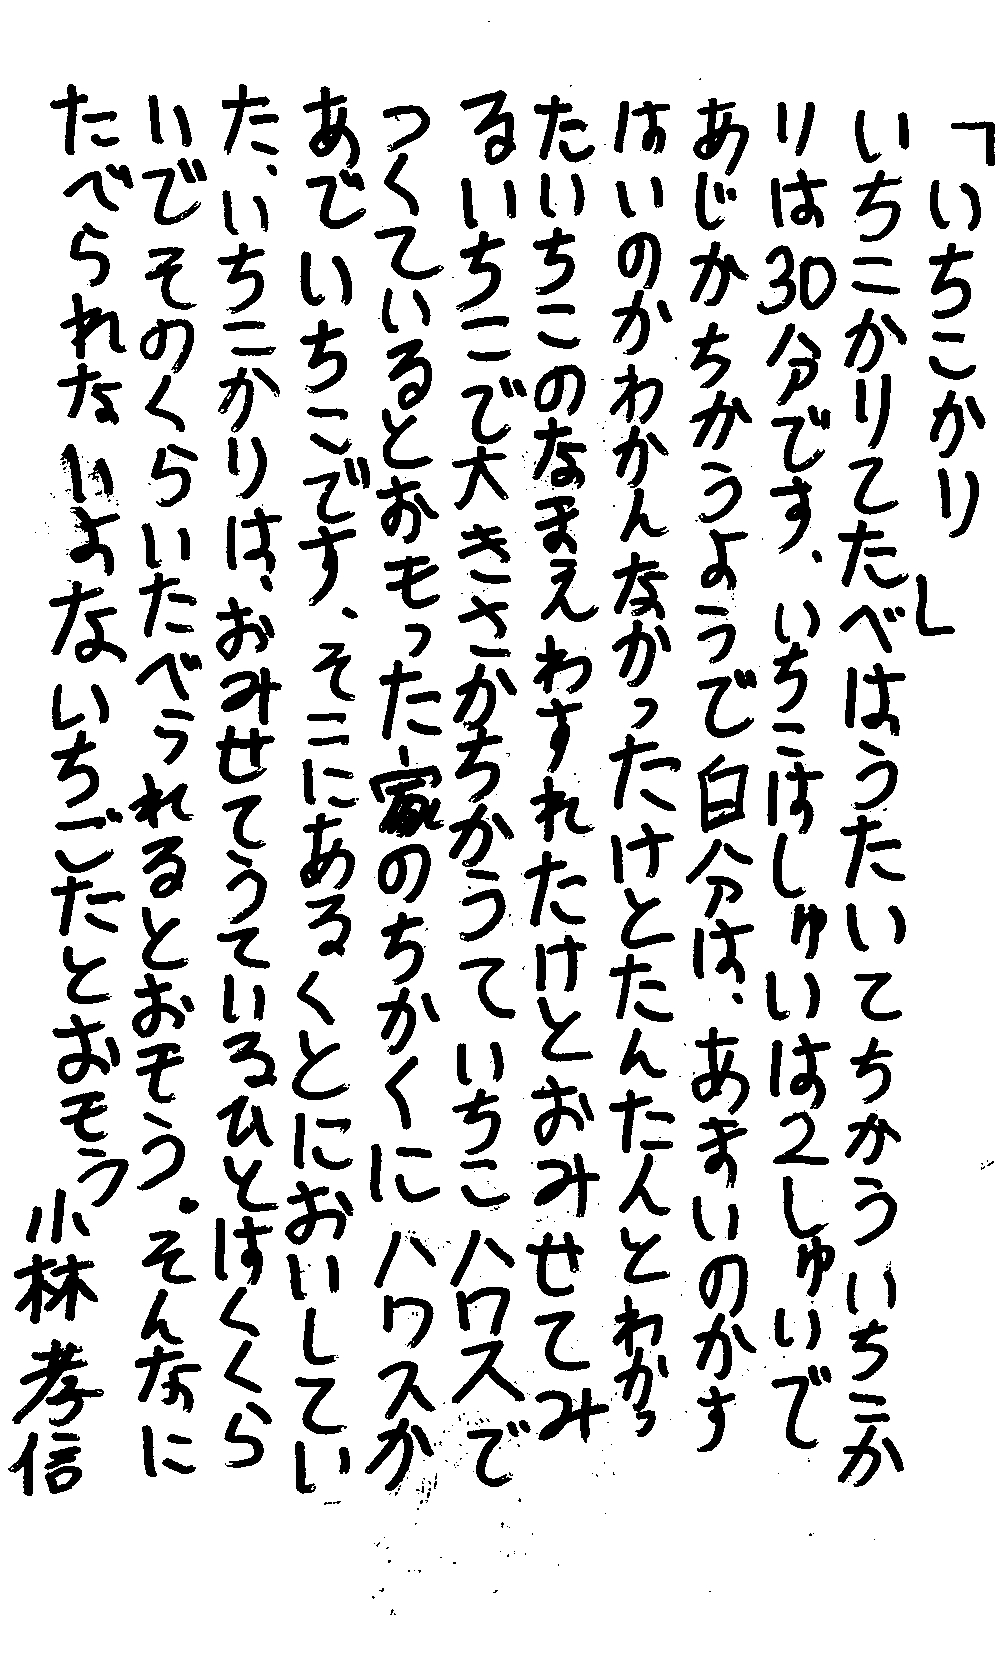 「いちこかり」
いちこかりてたべはうたいてちかういちこか
りは30分です、いちこはしゅいは2しゅいで
あじかちかうようで白分は、あまいのかす
はいのかわかんなかったけとたんたんとわがっ
たいちこのなまえわすれたけとおみせてみ
るいちこで大きさかちかうていちこハウスで
つくているとおモった家のちかくにハウスか
あでいちこです、そこにあるくとにおいしてい
た、いちこかりは、おみせてうているひとはくくら
いでそのくらいたべられるとおモう。そんなに
たべられないよないちごたとおモう
小林孝信